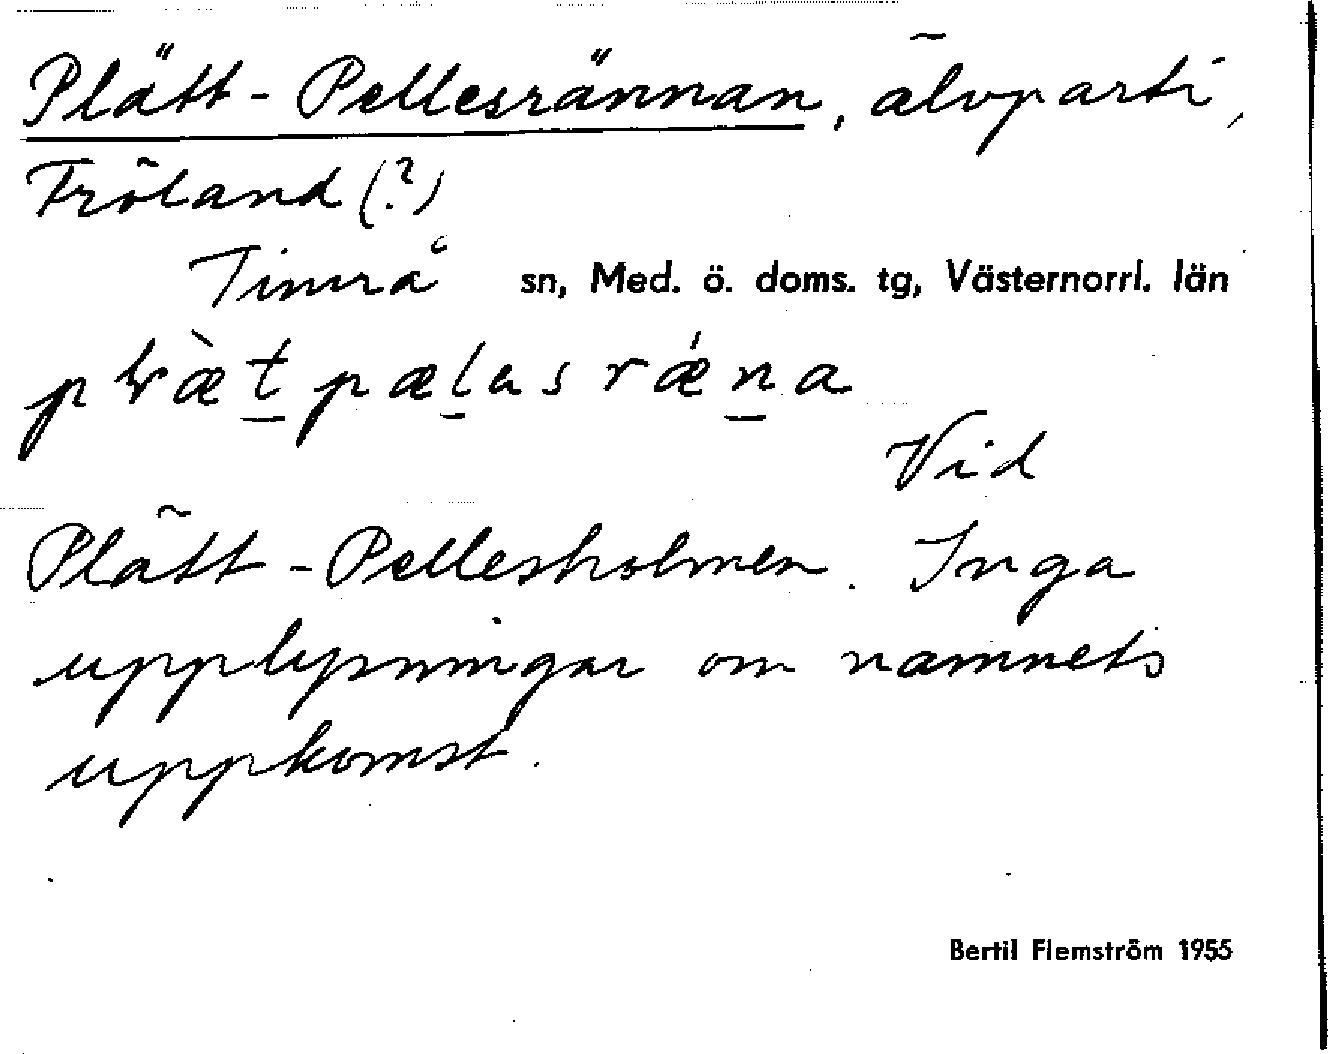 Plätt-Pellesrännan, älvparti,
Fröland (?)
Timrå sn, Med. ö. doms. tg, Västernorrl. län
Vid
Plätt-Pellesholmen. Inga
upplysningar om namnets
uppkomst.
Bertil Flemström 1955